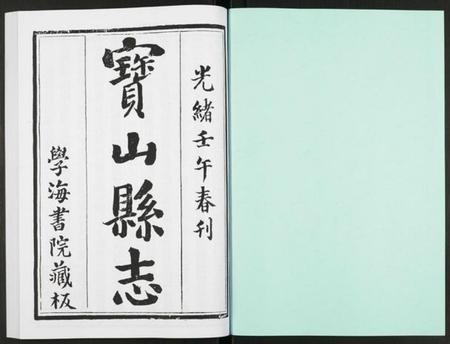 光緒壬午春刊
寶山縣志
學海書院藏板